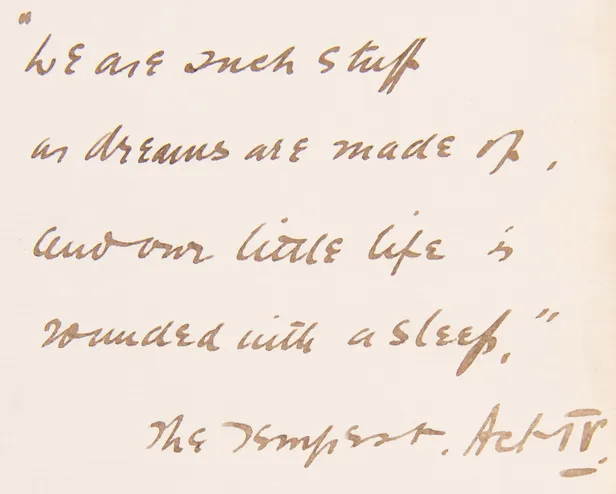 "We are such stuff
as dreams are made of,
and our little life is
rounded with a sleep."
The Tempest. Act IV.